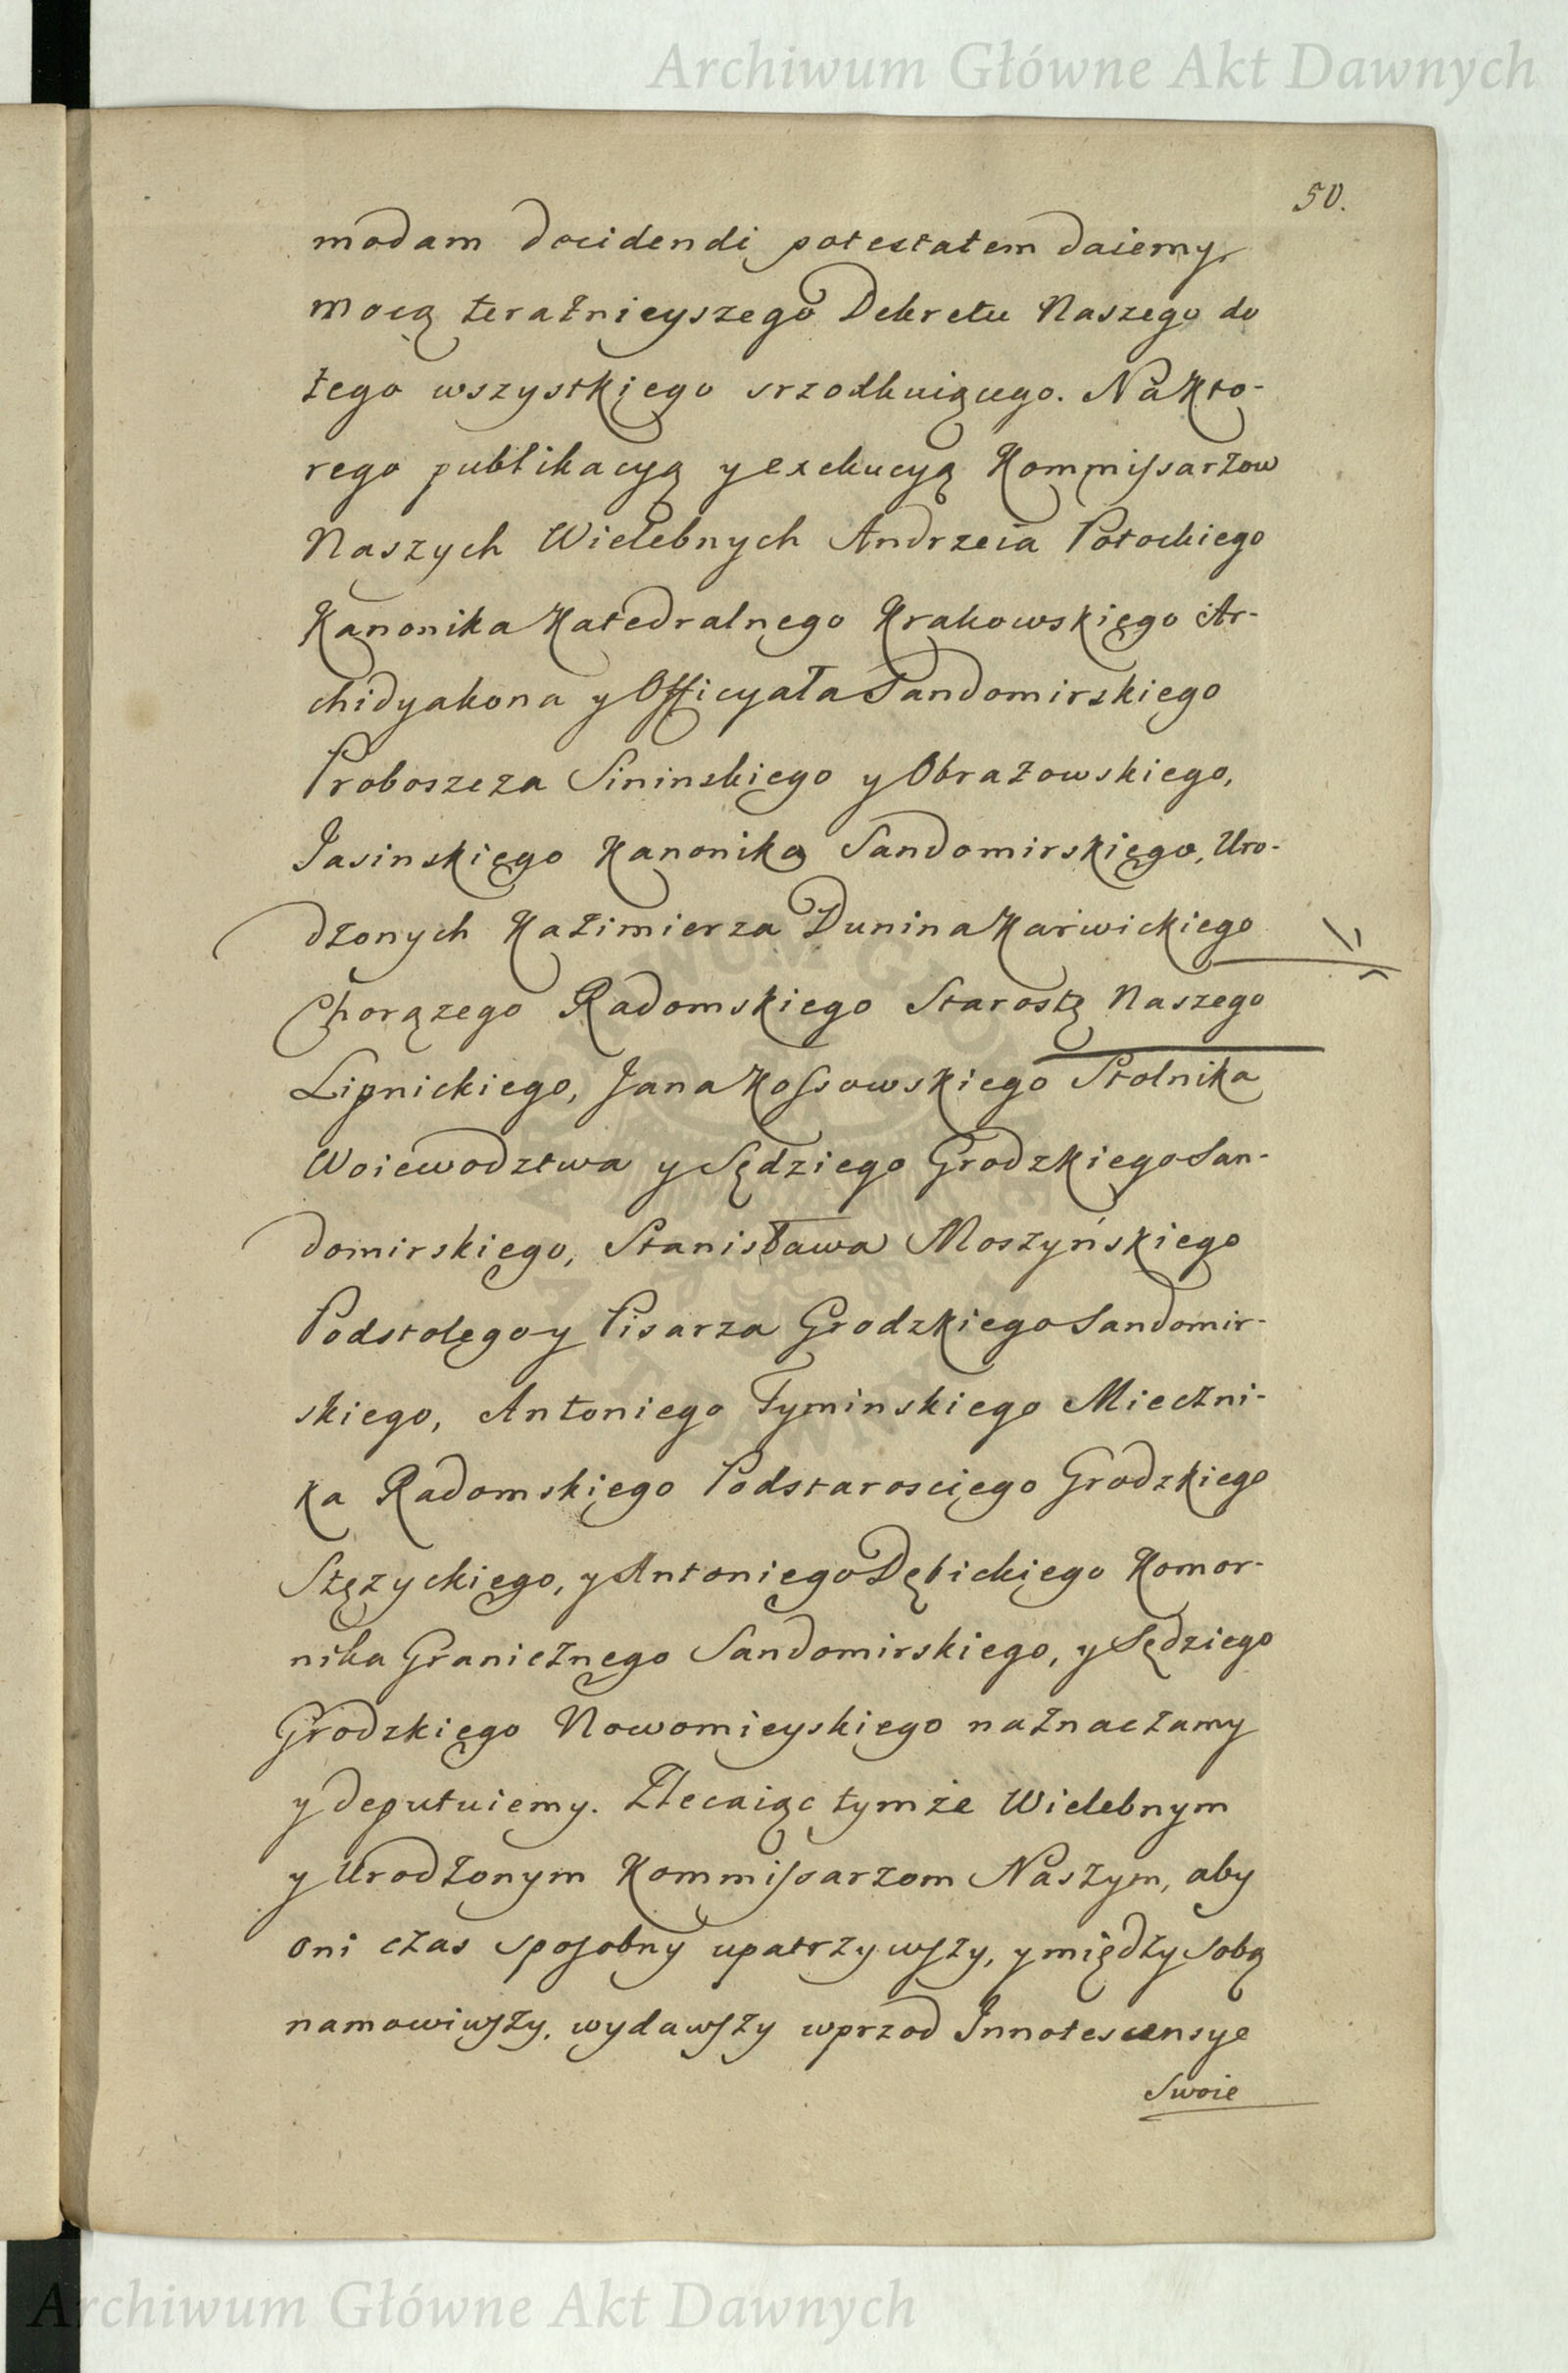 Archiwum Główne Akt Dawnych
50.
modam docidendi potestatem daiemy
mocą teraźnieyszego Dekretu Naszego do
tego wszystkiego srzodkuiącego. Na Kto-
rego publikacyą y exekucyą Kommissarzow
Naszych Wielebnych Andrzeia Potockiego
Kanonika Katedralnego Krakowskiego Ar-
chidyakona y Officyała Sandomirskiego
Proboszcza Sininskiego y Obrazowskiego,
Jasinskiego Kanonika Sandomirskiego, Uro-
dzonych Kazimierza Dunina Karwickiego
Chorązego Radomskiego Starostę Naszego
Lipnickiego, Jana Kossowskiego Stolnika
Woiewodztwa y Sędziego Grodzkiego San-
domirskiego, Stanisława Moszyńskiego
Podstolego y Pisarza Grodzkiego Sandomir-
skiego, Antoniego Tyminskiego Mieczni-
ka Radomskiego Podstarosciego Grodzkiego
Stęzyckiego, y Antoniego Dębickiego Komor-
nika Granicznego Sandomirskiego, y Sędziego
Grodzkiego Nowomieyskiego naznaczamy
y deputuiemy. Zlecaiąc tymże Wielebnym
y Urodzonym Kommissarzom Naszym, aby
oni czas sposobny upatrzywszy, y między sobą
namowiwszy, wydawszy wprzod Innotescensye
Swoie
Archiwum Główne Akt Dawnych